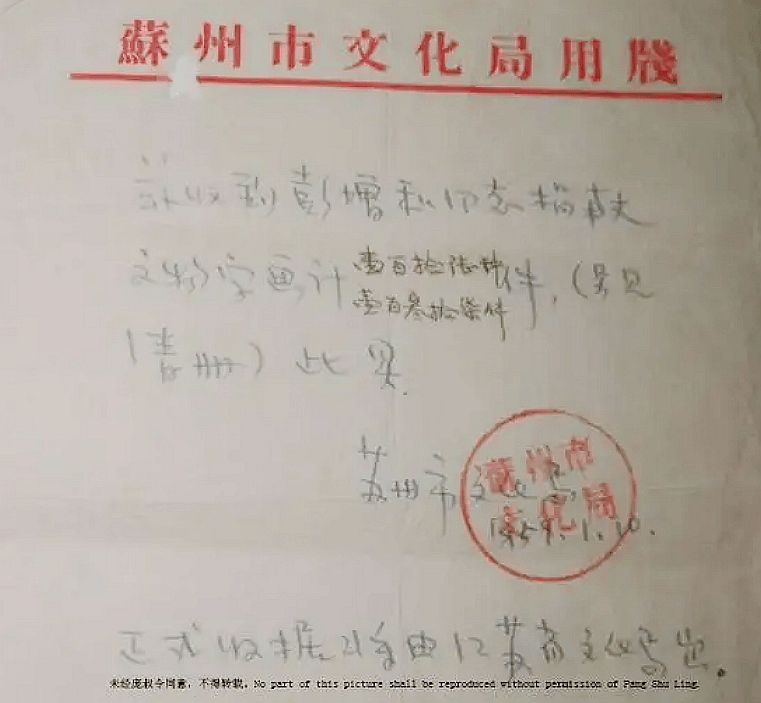 蘇州市文化局用牋
茲收到彭增和同志捐献
文物字画计
壹百拾
壹百叁拾柒件
件，（另见
清册）此具.
苏州市文化局
1959.1.10.
蘇州市
文化局
正式收据将由江苏省文化局出。
未经庞叔令同意，不得转载。No part of this picture shall be reproduced without permission of Pang Shu Ling